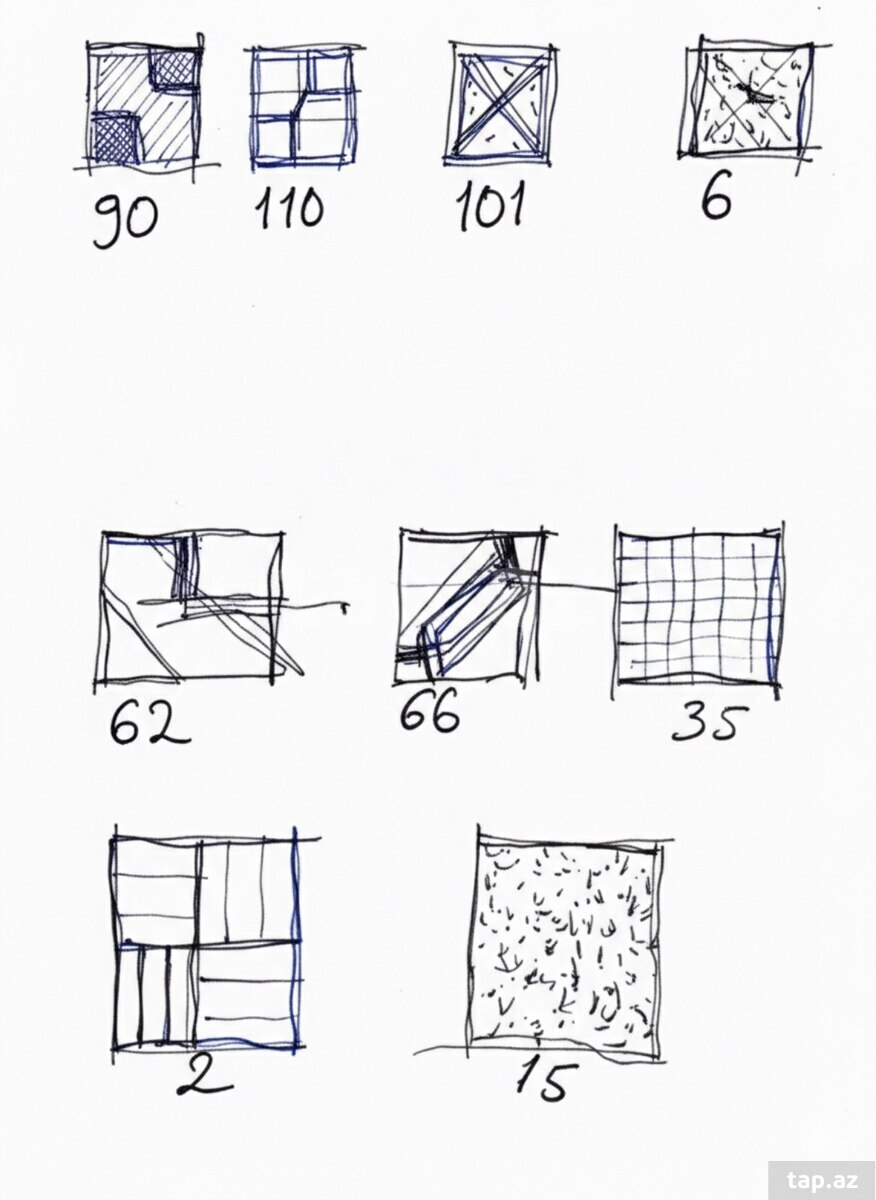 90 110 101 6
62 66 35
2 15
tap.az